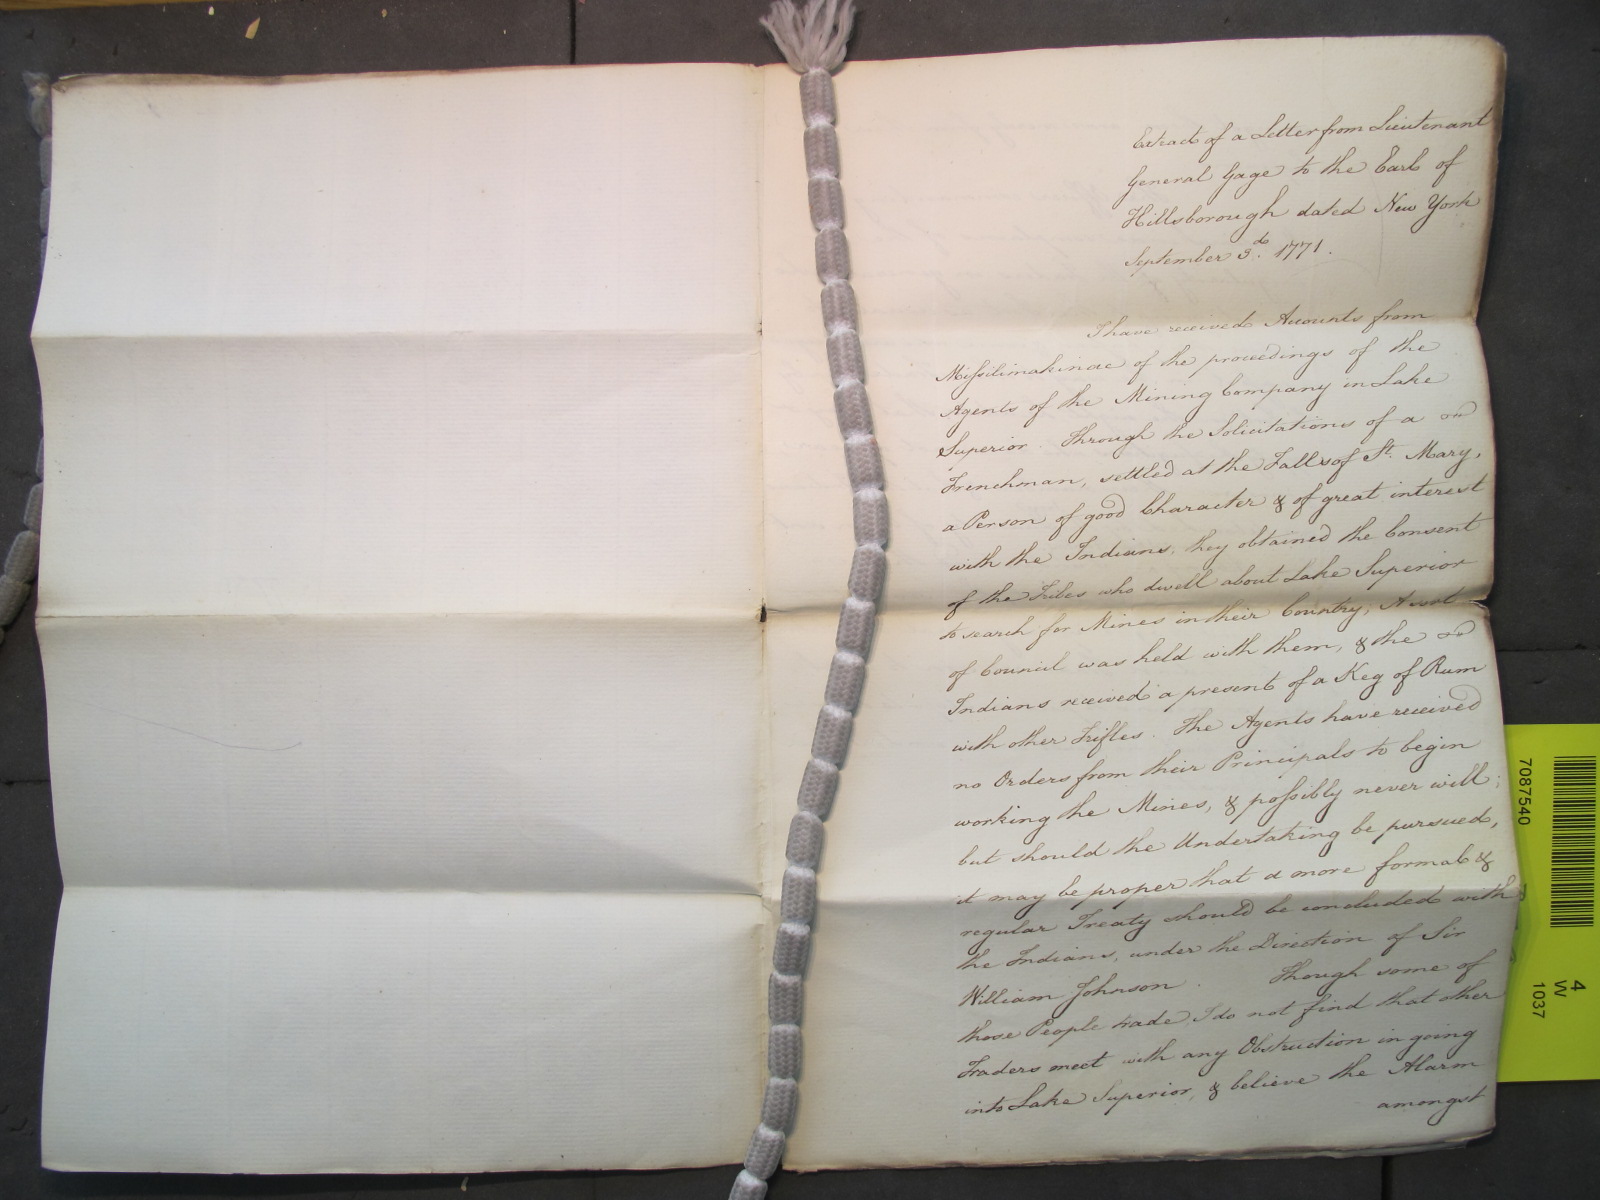 Extract of a Letter from Lieutenant
General Gage to the Earl of
Hillsborough dated New York
September 3.d 1771.
I have received Accounts from
Missilimakinac of the proceedings of the
Agents of the Mining Company in Lake
Superior. Through the Solicitations of a
Frenchman, settled at the Falls of St. Mary,
a Person of good Character & of great interest
with the Indians, they obtained the Consent
of the Tribes who dwell about Lake Superior
to search for Mines in their Country; A sort
of Council was held with them, & the
Indians received a present of a Keg of Rum
with other Trifles. The Agents have received
no Orders from their Principals to begin
working the Mines, & possibly never will;
but should the Undertaking be pursued,
it may be proper that a more formal &
regular Treaty should be concluded with
the Indians, under the Direction of Sir
William Johnson. Though some of
those People trade, I do not find that other
Traders meet with any Obstruction in going
into Lake Superior, & believe the Alarm
amongst
7087540
4
W
1037